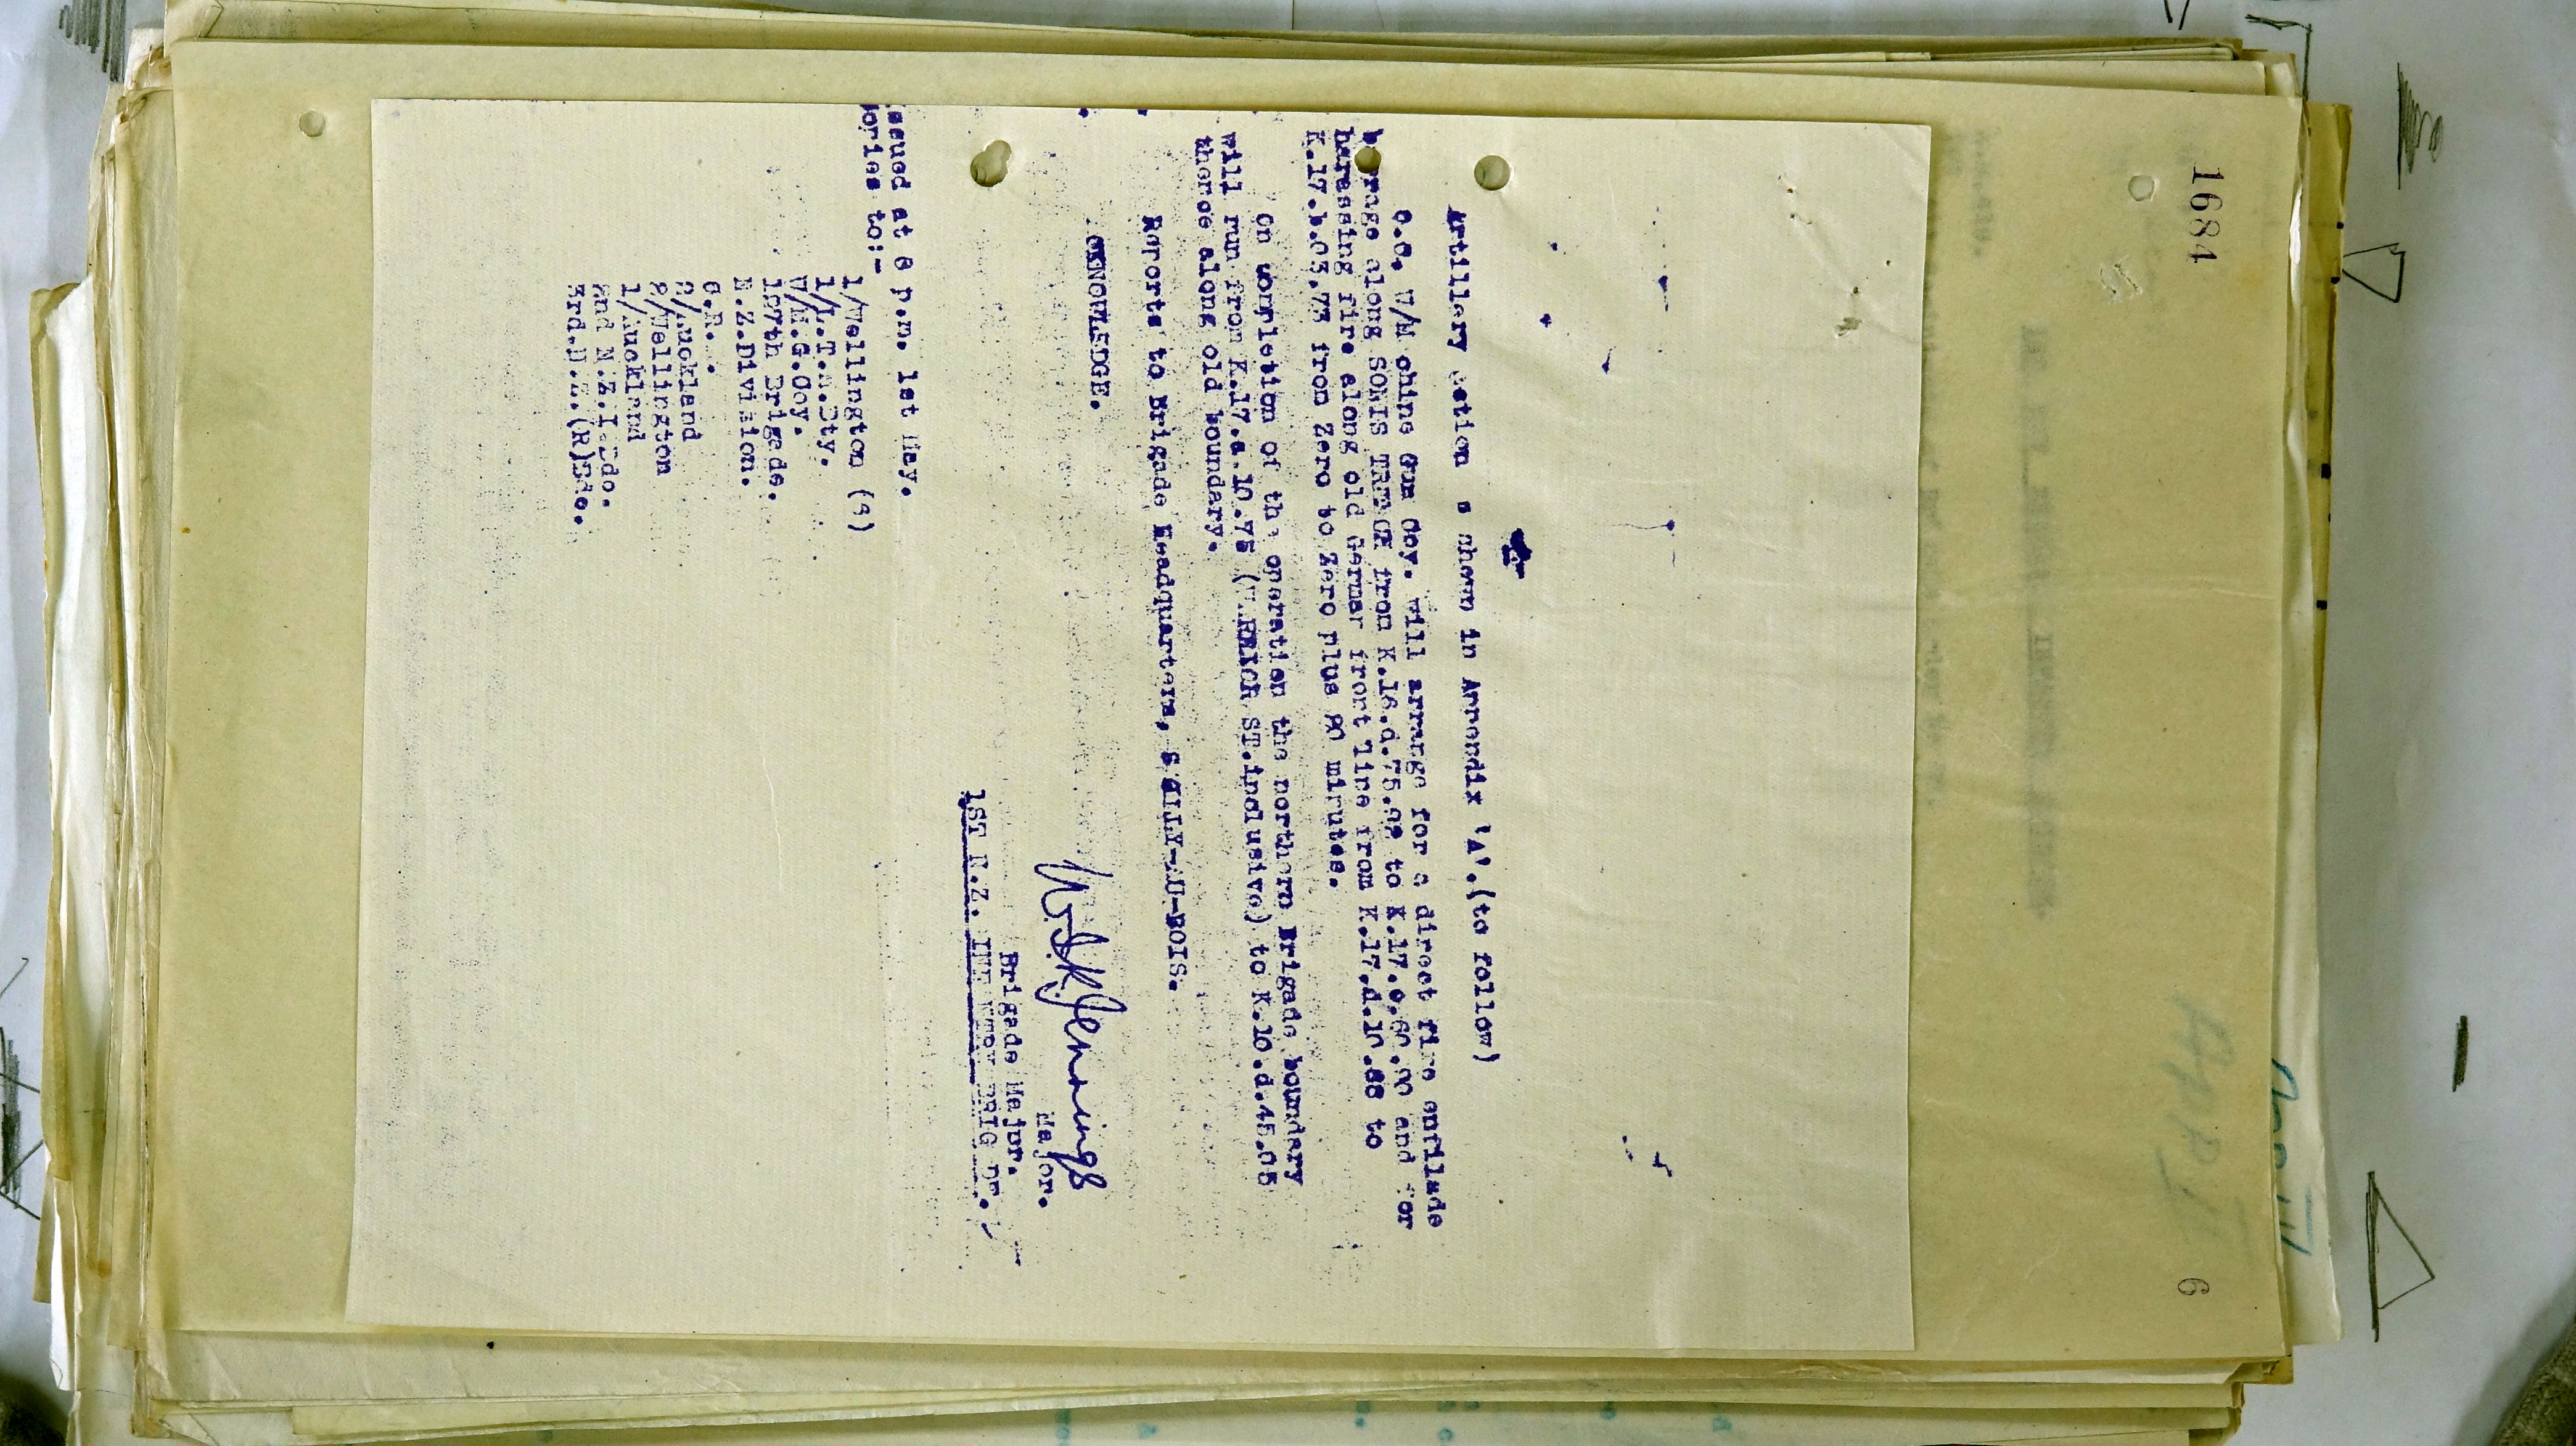 1684
6
Artillery action as shown in Appendix 'A'.(to follow)
O.C. W/Machine Gun Coy. will arrange for a direct fire enfilade
barrage along SOMIS TRENCH from K.16.d.75.98 to and for
harassing fire along old German front line from K.17.d.10.88 to
K.17.b.03.73 from Zero to Zero plus minutes.
On completion of the operation the northern Brigade boundary
will run from K.17.a.10.75 ( ST.inclusive) to K.10.d.45.05
thence along old boundary.
Reports to Brigade Headquarters, SAILLY-AU-BOIS.
CKNOWLEDGE.
Major.
Brigade Major.
1ST N.Z. INFANTRY BRIGADE.
ssued at p.m. 1st May.
opies to:-
1/Wellington
1/L.T.M.Bty.
W/M.G.Coy.
127th Brigade.
N.Z.Division.
C.R.A.
2/Auckland
2/Wellington
1/Auckland
2nd N.Z.I.Bde.
3rd.N.Z.(R)Bde.